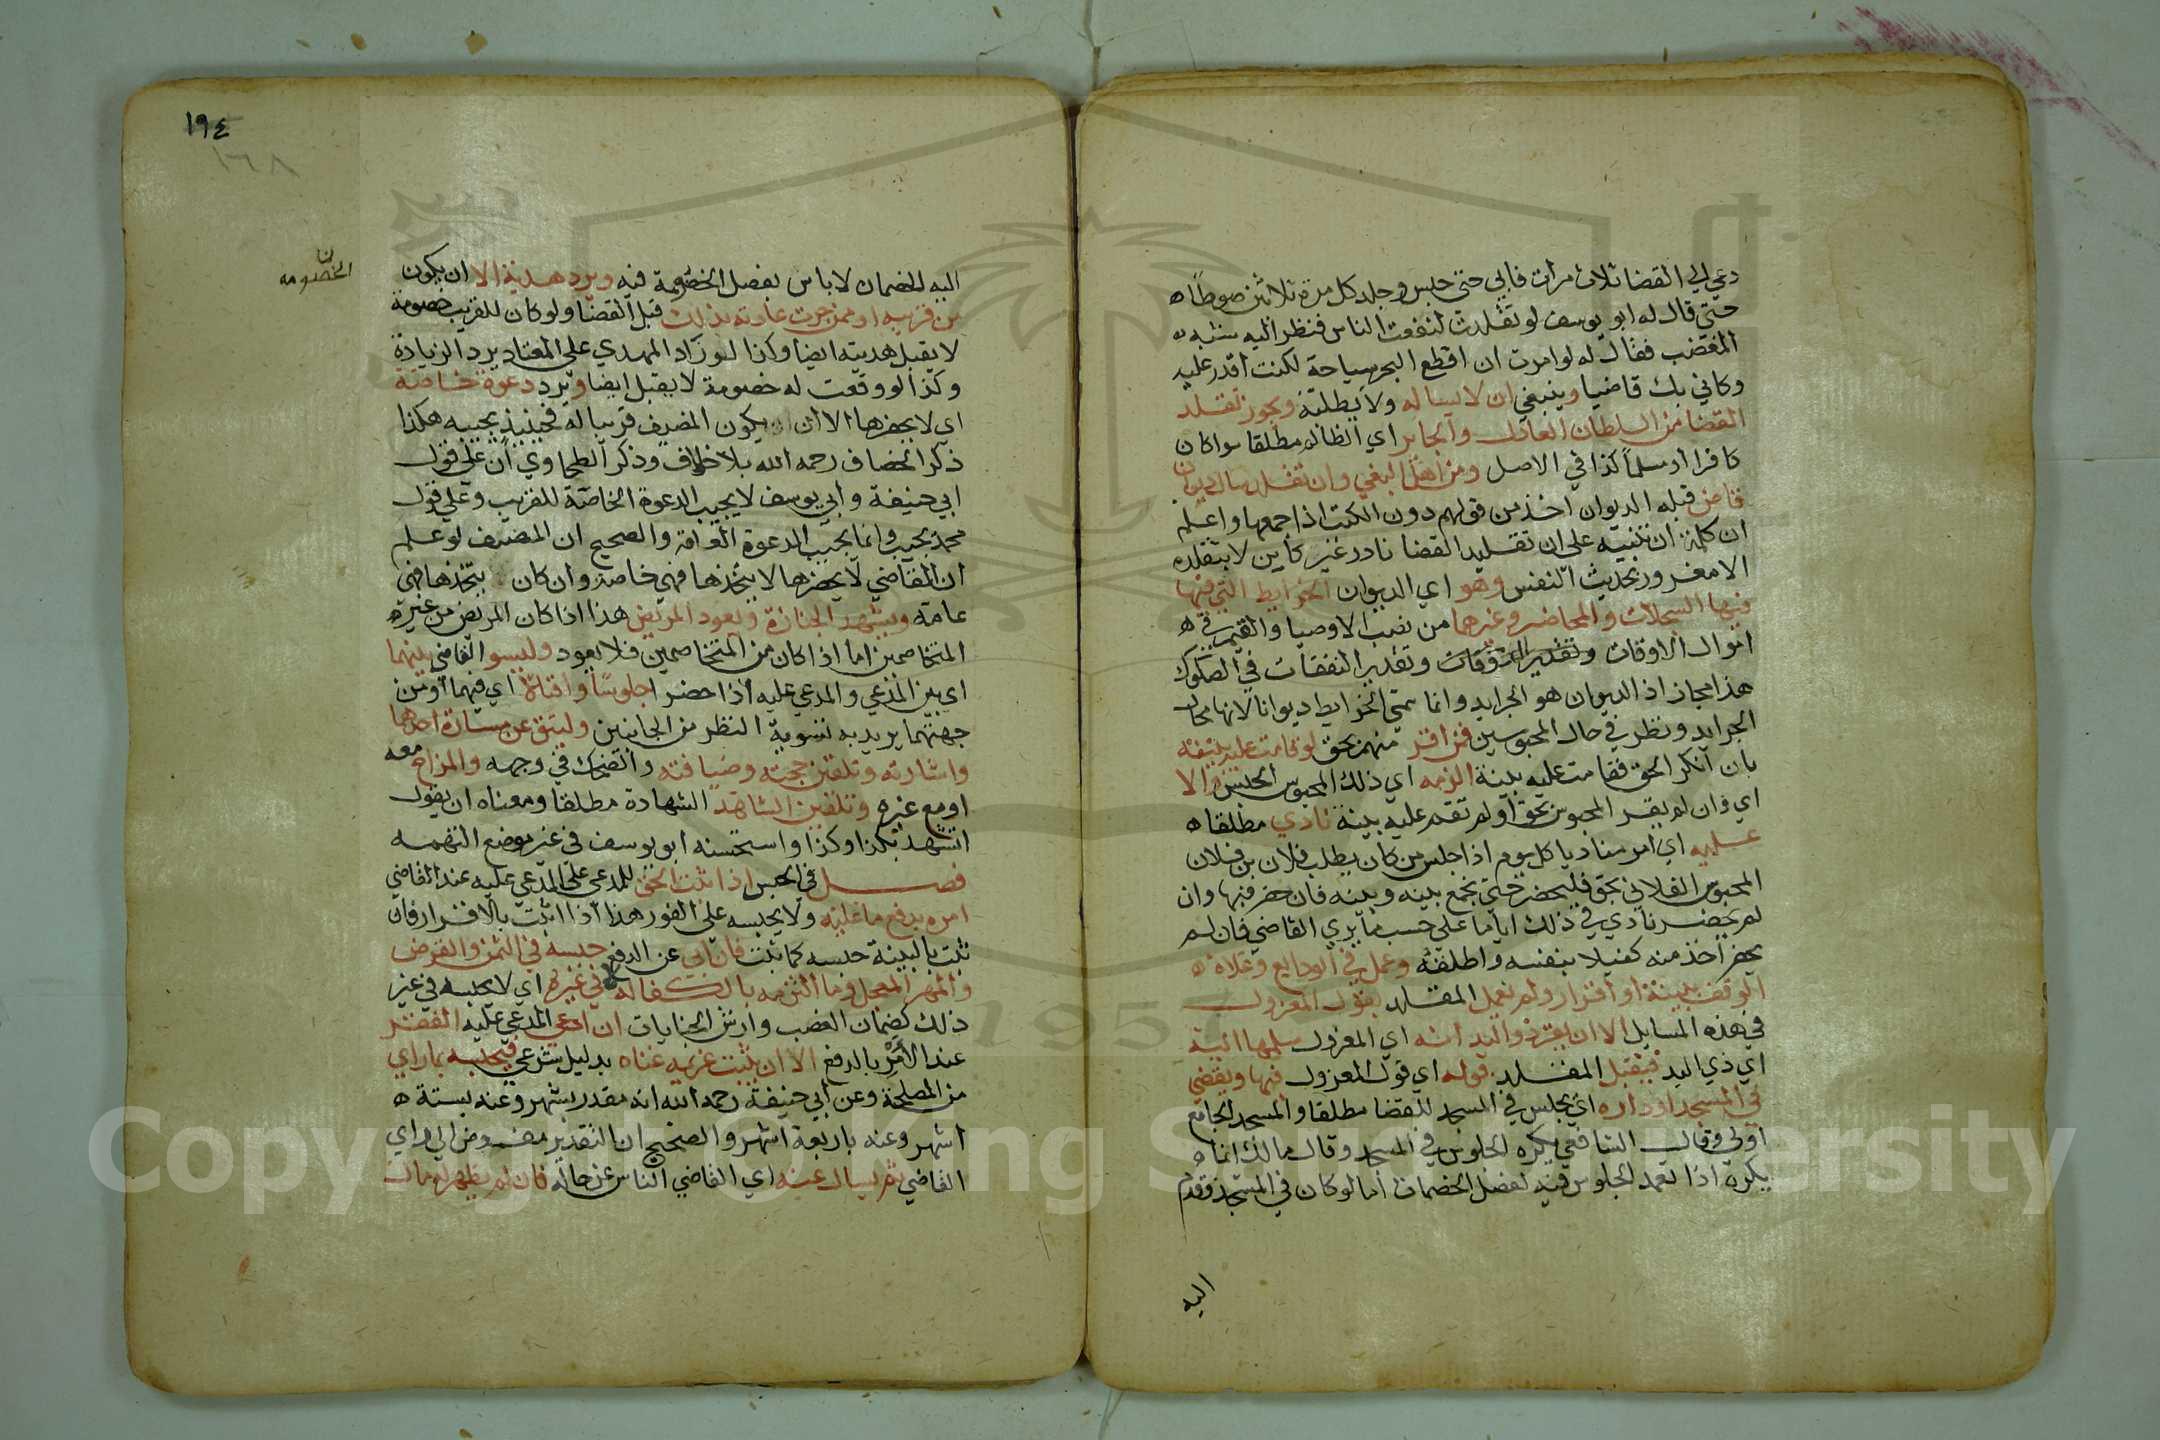 دعي الي القضا ثلاث مرات فابي حتي حبس وجلد كل مرة ثلاثين صوطاً ه
حتي قال له ابو يوسف لو تقلدت لنفعت الناس فنظر اليه شبه
المغضب فقال له لو امرت ان اقطع البحر سباحة لكنت اقدر عليه
وكاني بك قاضيا وينبغي ان لا يساله ولا يطلبه ويجوز تقلد
القضا من السلطان العادل والجاير اي الظالم مطلقا سوا كان
كافرا او مسلماً كذا في الاصل ومن اهل البغي وان تقلد سال ديوان
قاض قبله الديوان اخذ من قولهم دون الكتب اذا جمعها واعلم
ان كلمة ان تنبيه على ان تقليد القضا نادر غير كاين لا يتقلده
الا مغرور بحديث النفس وهو اي الديوان الخرايط التي فيها
فيها السجلات والمحاضر وغيرهما من نصب الاوصيا والقيم في ه
اموال الاوقات وتقدير النفقات في الصكوك
هذا مجاز اذ الديوان هو الجرايد وانما سمي الخرايط ديوانا لانها محال
الجرايد ونظر في حال المحبوسين فمن اقر منهم بحق او قامت عليه بينة
بان انكر الحق فقامت عليه بينة الزمه اي ذلك المحبوس الحبس والا
اي وان لم يقر المحبوس بحق او لم تقم عليه بينة نادي مطلقا ه
عليه اي امر مناديا كل يوم اذا جلس من كان يطلب فلان بن فلان
المحبوس الفلاني بحق فليحضر حتي نجمع بينه وبينه فان حضر فبها وان
لم يحضر نادي في ذلك اياما علي حسب ما يري القاضي فان لم
يحضر اخذ منه كفيلا بنفسه واطلقه وعمل في الودايع وغلاة ه
الوقف ببينة او اقرار ولم يعمل المقلد بقول المعزول
في هذه المسايل الا ان يقر ذو اليد انه اي المعزول سلمها اليه
اي ذي اليد فيقبل المقلد قوله اي قول المعزول فيها ويقضي
في المسجد او داره اي يجلس في المسجد للقضا مطلقا والمسجد الجامع
اولي وقال الشافعي يكره الجلوس في المسجد وقال مالك انما ه
يكره اذا تعمد الجلوس فيه لفصل الخصمات اما لو كان في المسجد وقدم
اليه
١٩٤
١٦٨
اليه الخصمان لا باس بفصل الخصومة فيه ويرد هدية الا ان يكون
الخصومه
من قريبه او ممن جرت عادته بذلك قبل القضا ولو كان للقريب خصومة
لا يقبل هديته ايضا وكذا لو زاد المهدي علي المعتاد يرد الزيادة
وكذا لو وقعت له خصومة لا يقبل ايضا ويرد دعوة خاصة
اي لا يحضرها الا ان يكون المضيف قريبا له فحينيذ يجيبه هكذا
ذكر الخصاف رحمه الله بلا خلاف وذكر الطحاوي ان على قول
ابي حنيفة وابي يوسف لا يجيب الدعوة الخاصة للقريب وعلي قول
محمد يجيب وانما يجيب الدعوة العامة والصحيح ان المضيف لو علم
ان القاضي لا يحضرها لا يتخذها فهي خاصة وان كان يتخذها فهي
عامة ويشهد الجنازة ويعود المريض هذا اذا كان المريض من غير ه
المتخاصمين اما اذا كان من المتخاصمين فلا يعود وليسو القاضي بينهما
اي بين المدعي والمدعي عليه اذا حضر اجلوسا واقبالا اي فيهما او من
جهتهما يريد به تسوية النظر من الجانبين وليتق عن مسارة احدهما
واشارته وتلقين حجته وضيافته والضحك في وجهه والمزاح معه
او مع غيره وتلقين الشاهد الشهادة مطلقا ومعناه ان يقول
اتشهد بكذا وكذا واستحسنه ابو يوسف في غير موضع التهمه
فصل في الحبس اذا ثبت الحق للمدعي على المدعي عليه عند القاضي
امره بدفع ما عليه ولا يحبسه على الفور هذا اذا اثبت بالاقرار فان
ثبت بالبينة حبسه كما ثبت فان ابي عن الدفع حبسه في الثمن والقرض
والمهر المعجل وما التزمه بالكفاله لا في غيره اي لا يحبسه في غير
ذلك كضمان الغصب وارش الجنايات ان ادعي المدعي عليه الفقر
عند الأمر بالدفع الا ان يثبت غريمه غناه بدليل شرعي فيحبسه بما راي
من المصلحة وعن ابي حنيفة رحمه الله انه مقدر بشهر وعنه بستة ه
اشهر وعنه باربعة اشهر والصحيح ان التقدير مفوض الي راي
القاضي ثم يسال عنه اي القاضي الناس عن حاله فان لم يظهر له مال
Copyright © King Saud University
1957